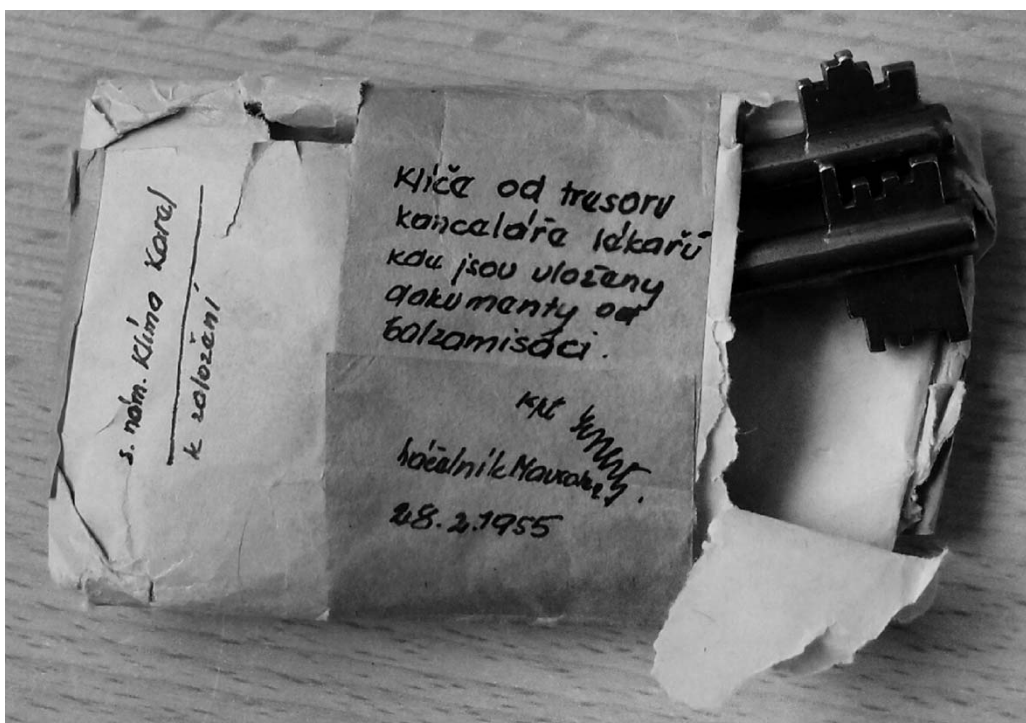 s. nám. Klíma Karel
k založení
Klíče od tresoru
kanceláře lékařů
kde jsou uloženy
dokumenty od
balzamisaci.
kpt
Náčelník
28.2.1955